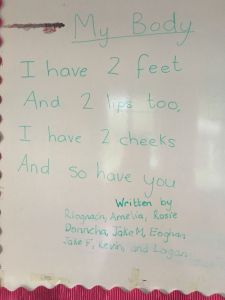 My Body
I have 2 feet
And 2 lips too,
I have 2 cheeks
And so have you
Written by
Amelia, Rosie
Donncha, Jake M, Eoghan
Jake F, Kevin, and Logan